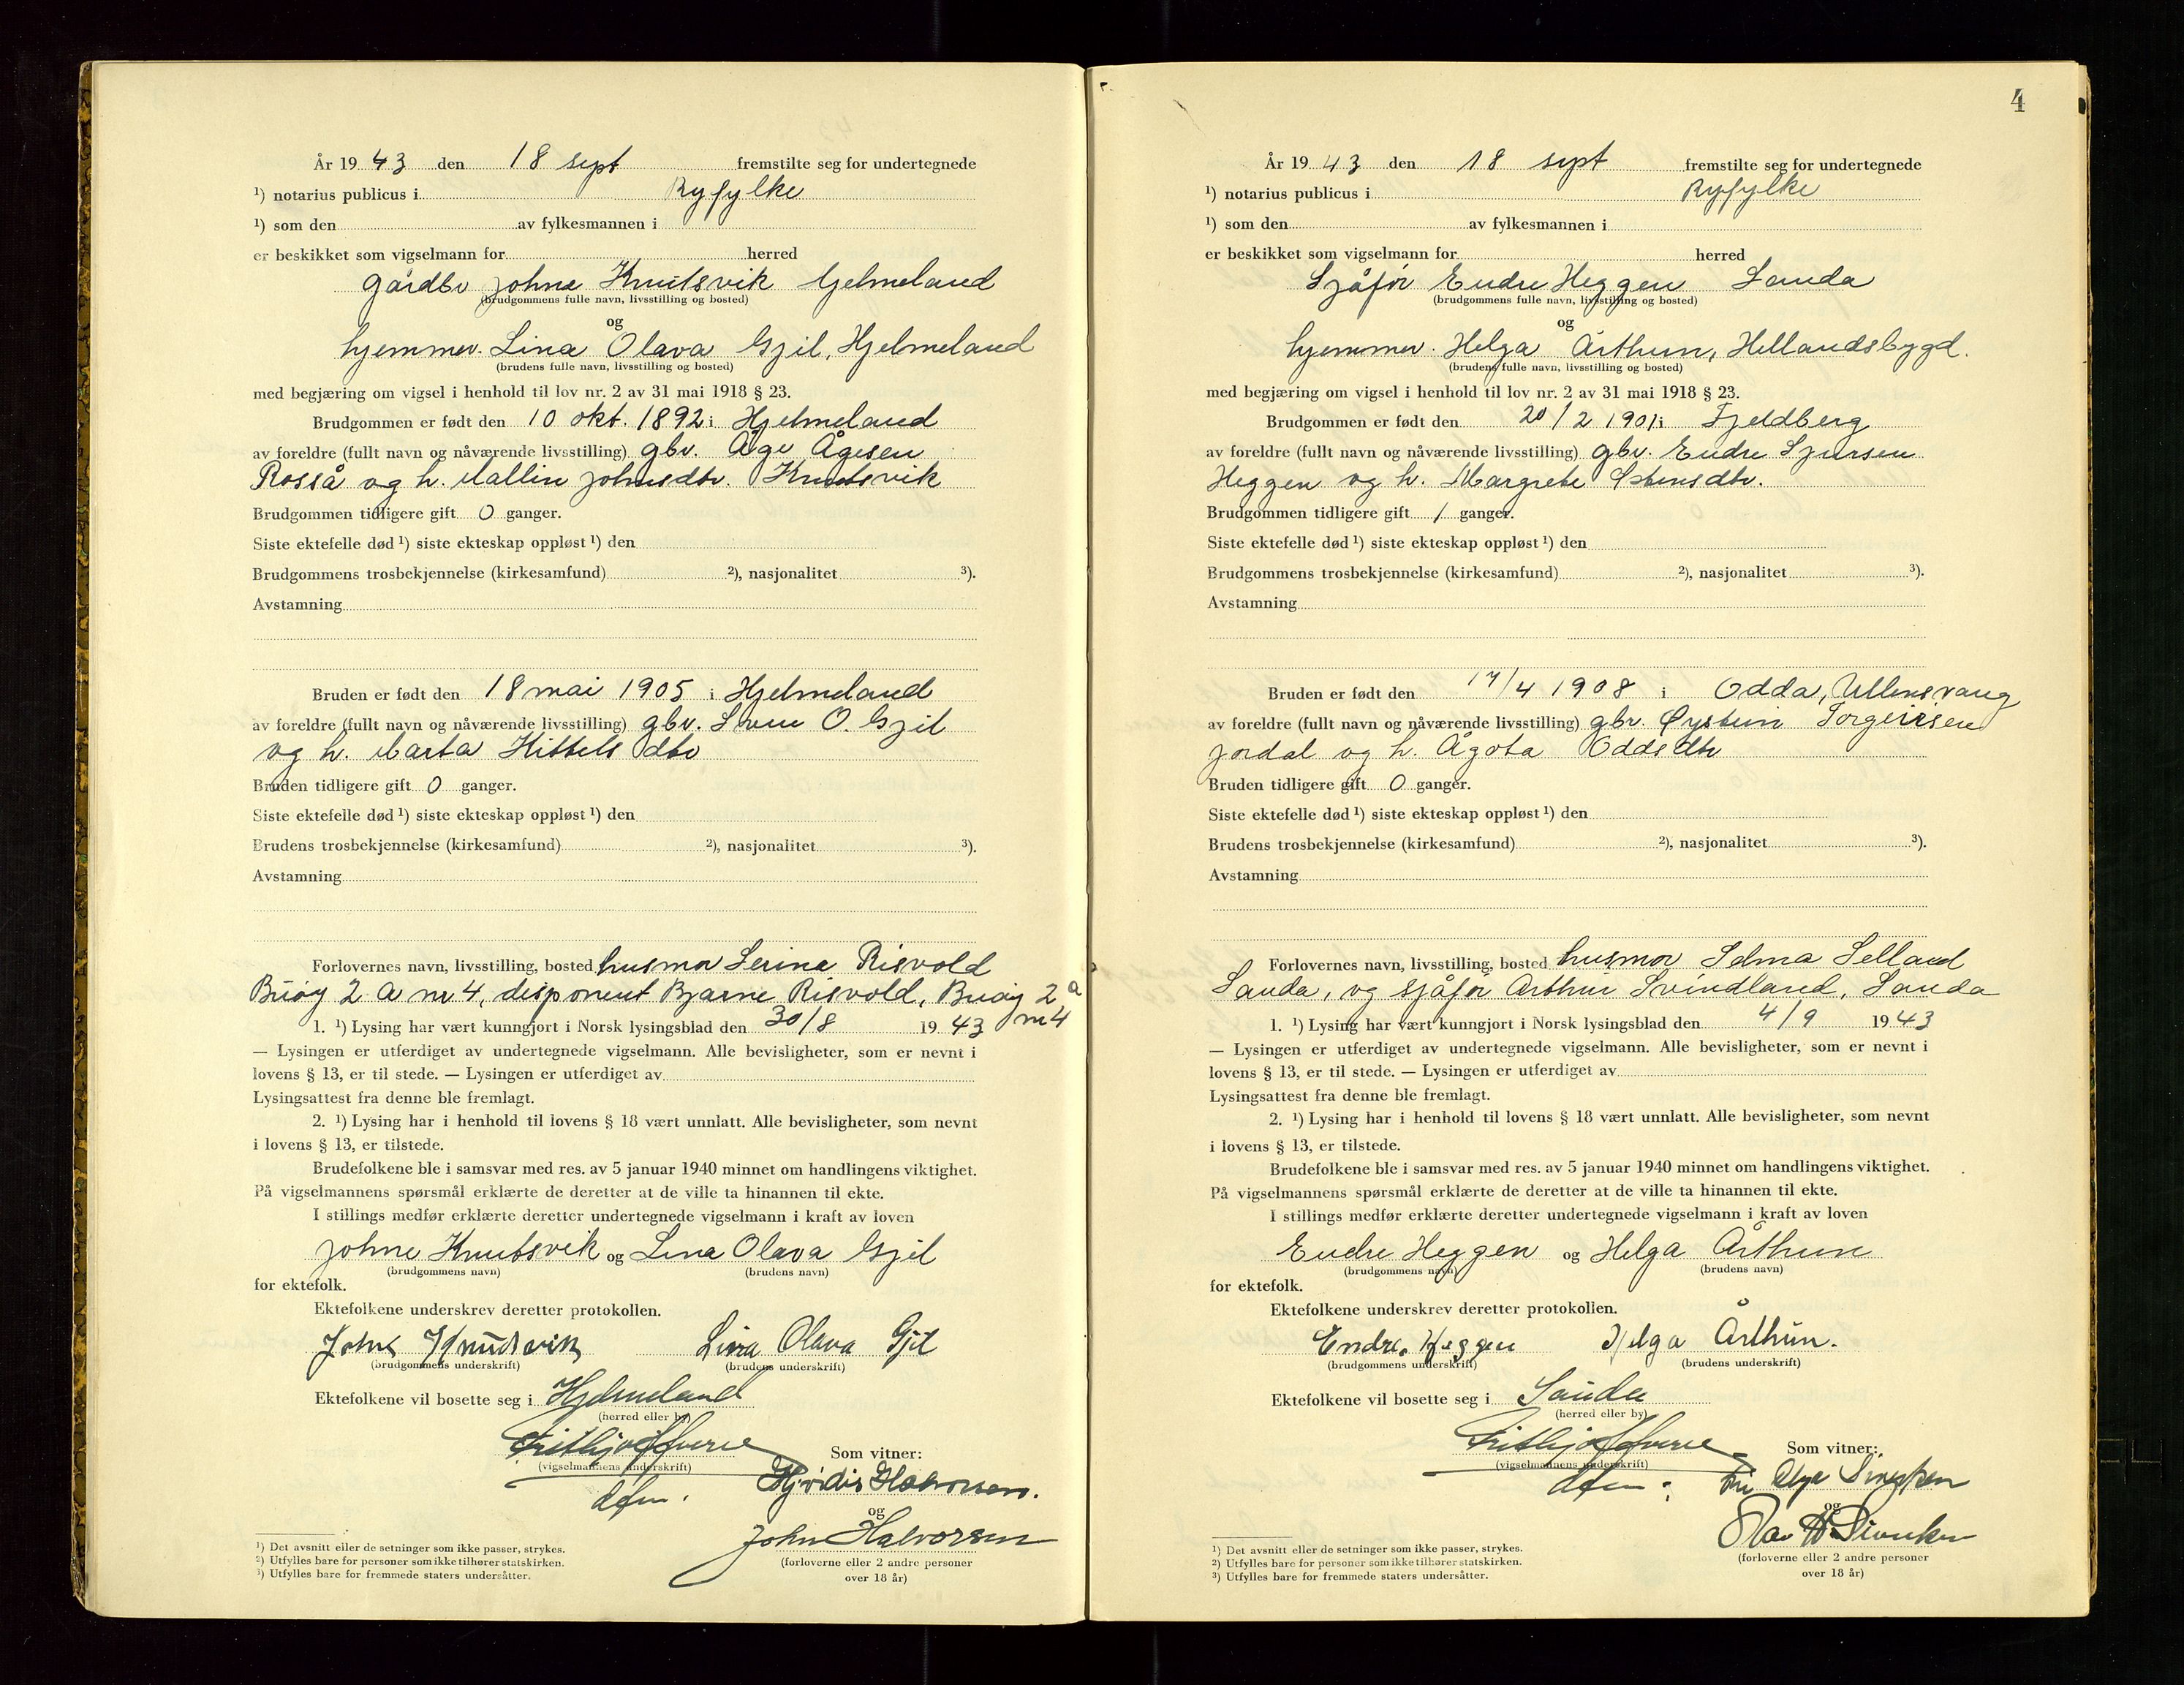 År 19 43 den 18 sept fremstilte seg for undertegnede
¹) notarius publicus i Ryfylke
¹) som den av fylkesmannen i
er beskikket som vigselmann for herred
gårdbr Johne Knutsvik Hjelmeland
(brudgommens fulle navn, livsstilling og bosted)
og
hjemmev. Lina Olava Gjil, Hjelmeland
(brudens fulle navn, livsstilling og bosted)
med begjæring om vigsel i henhold til lov nr. 2 av 31 mai 1918 § 23.
Brudgommen er født den 10 okt. 1892 i Hjelmeland
av foreldre (fullt navn og nåværende livsstilling) gbr. Åge Ågesen
Rosså og h. Mallin Johnsdtr. Knutsvik
Brudgommen tidligere gift 0 ganger.
Siste ektefelle død ¹) siste ekteskap oppløst ¹) den
Brudgommens trosbekjennelse (kirkesamfund) ²), nasjonalitet ³).
Avstamning
Bruden er født den 18 mai 1905 i Hjelmeland
av foreldre (fullt navn og nåværende livsstilling) gbr. Sven O. Gjil
og h. Marta Kittelsdtr
Bruden tidligere gift 0 ganger.
Siste ektefelle død ¹) siste ekteskap oppløst ¹) den
Brudens trosbekjennelse (kirkesamfund) ²), nasjonalitet ³).
Avstamning
Forlovernes navn, livsstilling, bosted husmor Serina Risvold
Buøy 2 a nr 4, disponent Bjarne Risvold, Buøy 2 a
nr 4
1. ¹) Lysing har vært kunngjort i Norsk lysingsblad den 30/8 19 43
— Lysingen er utferdiget av undertegnede vigselmann. Alle bevisligheter, som er nevnt i
lovens § 13, er til stede. — Lysingen er utferdiget av
Lysingsattest fra denne ble fremlagt.
2. ¹) Lysing har i henhold til lovens § 18 vært unnlatt. Alle bevisligheter, som nevnt
i lovens § 13, er tilstede.
Brudefolkene ble i samsvar med res. av 5 januar 1940 minnet om handlingens viktighet.
På vigselmannens spørsmål erklærte de deretter at de ville ta hinannen til ekte.
I stillings medfør erklærte deretter undertegnede vigselmann i kraft av loven
Johne Knutsvik og Lina Olava Gjil
(brudgommens navn) (brudens navn)
for ektefolk.
Ektefolkene underskrev deretter protokollen.
Johne Knudsvik Lina Olava Gjil
(brudgommens underskrift) (brudens underskrift)
Ektefolkene vil bosette seg i Hjelmeland
(herred eller by)
Som vitner:
(vigselmannens underskrift)
Hjørdis Halvorsen.
dfm.
og
John Halvorsen
(forloverne eller 2 andre personer
over 18 år)
¹) Det avsnitt eller de setninger som ikke passer, strykes.
²) Utfylles bare for personer som ikke tilhører statskirken.
³) Utfylles bare for fremmede staters undersåtter.
4
År 19 43 den 18 sept fremstilte seg for undertegnede
¹) notarius publicus i Ryfylke
¹) som den av fylkesmannen i
er beskikket som vigselmann for herred
Sjåfør Endre Heggen Sauda
(brudgommens fulle navn, livsstilling og bosted)
og
hjemmev. Helga Århun, Hellandsbygd.
(brudens fulle navn, livsstilling og bosted)
med begjæring om vigsel i henhold til lov nr. 2 av 31 mai 1918 § 23.
Brudgommen er født den 20/2 1901 i Fjeldberg
av foreldre (fullt navn og nåværende livsstilling) gbr. Endre Sjursen
Heggen og h. Margrete Østensdtr.
Brudgommen tidligere gift 1 ganger.
Siste ektefelle død ¹) siste ekteskap oppløst ¹) den
Brudgommens trosbekjennelse (kirkesamfund) ²), nasjonalitet ³).
Avstamning
Bruden er født den 14/4 1908 i Odda, Ullensvang
av foreldre (fullt navn og nåværende livsstilling) gbr. Øystein Torgeirsen
Jordal og h. Ågota Oddsdtr
Bruden tidligere gift 0 ganger.
Siste ektefelle død ¹) siste ekteskap oppløst ¹) den
Brudens trosbekjennelse (kirkesamfund) ²), nasjonalitet ³).
Avstamning
Forlovernes navn, livsstilling, bosted husmor Selma Selland
Sauda, og sjåfør Arthur Svindland, Sauda
1. ¹) Lysing har vært kunngjort i Norsk lysingsblad den 4/9 19 43
— Lysingen er utferdiget av undertegnede vigselmann. Alle bevisligheter, som er nevnt i
lovens § 13, er til stede. — Lysingen er utferdiget av
Lysingsattest fra denne ble fremlagt.
2. ¹) Lysing har i henhold til lovens § 18 vært unnlatt. Alle bevisligheter, som nevnt
i lovens § 13, er tilstede.
Brudefolkene ble i samsvar med res. av 5 januar 1940 minnet om handlingens viktighet.
På vigselmannens spørsmål erklærte de deretter at de ville ta hinannen til ekte.
I stillings medfør erklærte deretter undertegnede vigselmann i kraft av loven
Endre Heggen og Helga Århun
(brudgommens navn) (brudens navn)
for ektefolk.
Ektefolkene underskrev deretter protokollen.
Endre Heggen Helga Århun.
(brudgommens underskrift) (brudens underskrift)
Ektefolkene vil bosette seg i Sauda
(herred eller by)
Som vitner:
(vigselmannens underskrift)
dfm.
og
(forloverne eller 2 andre personer
over 18 år)
¹) Det avsnitt eller de setninger som ikke passer, strykes.
²) Utfylles bare for personer som ikke tilhører statskirken.
³) Utfylles bare for fremmede staters undersåtter.